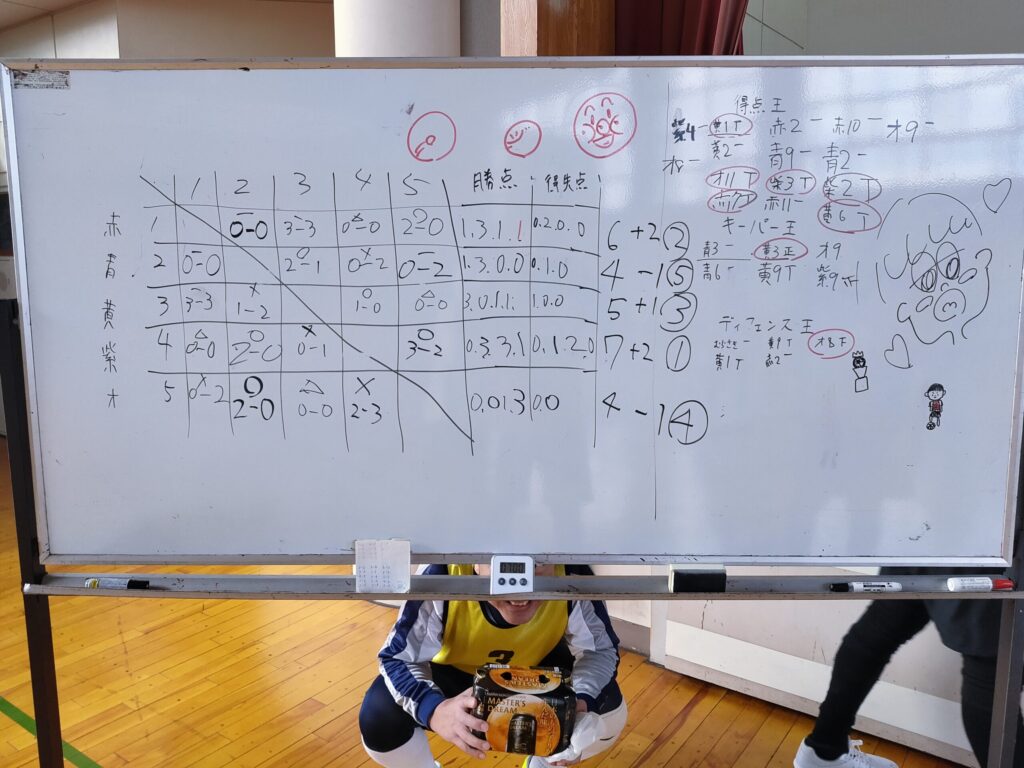 得点王
紫4一 黄1T 赤2一 赤10一 オ9一
オ8一 黄2一 青9一 青2一
オ11T 紫3T 紫2T
赤11一 黄6T
キーパー王
青3一 黄3正 オ9
青6一 黄9T 紫9
ディフェンス王
むらさき一 黄9T オ8T
黄1T 赤2一
1 2 3 4 5 勝点 得失点
赤 1 0-0 3-3 0-0 2-0 1.3.1.1 0.2.0.0 6 +2 ②
青 2 0-0 2-1 0-2 0-2 1.3.0.0 0.1.0 4 -1 ⑤
黄 3 3-3 1-2 1-0 0-0 3.0.1.1. 1.0.0 5 +1 ③
紫 4 0-0 2-0 0-1 3-2 0.3.3.1 0.1.2.0 7 +2 ①
オ 5 0-2 2-0 0-0 2-3 0.0.1.3 0.0 4 -1 ④
MASTER'S DREAM
MASTER'S
DREAM